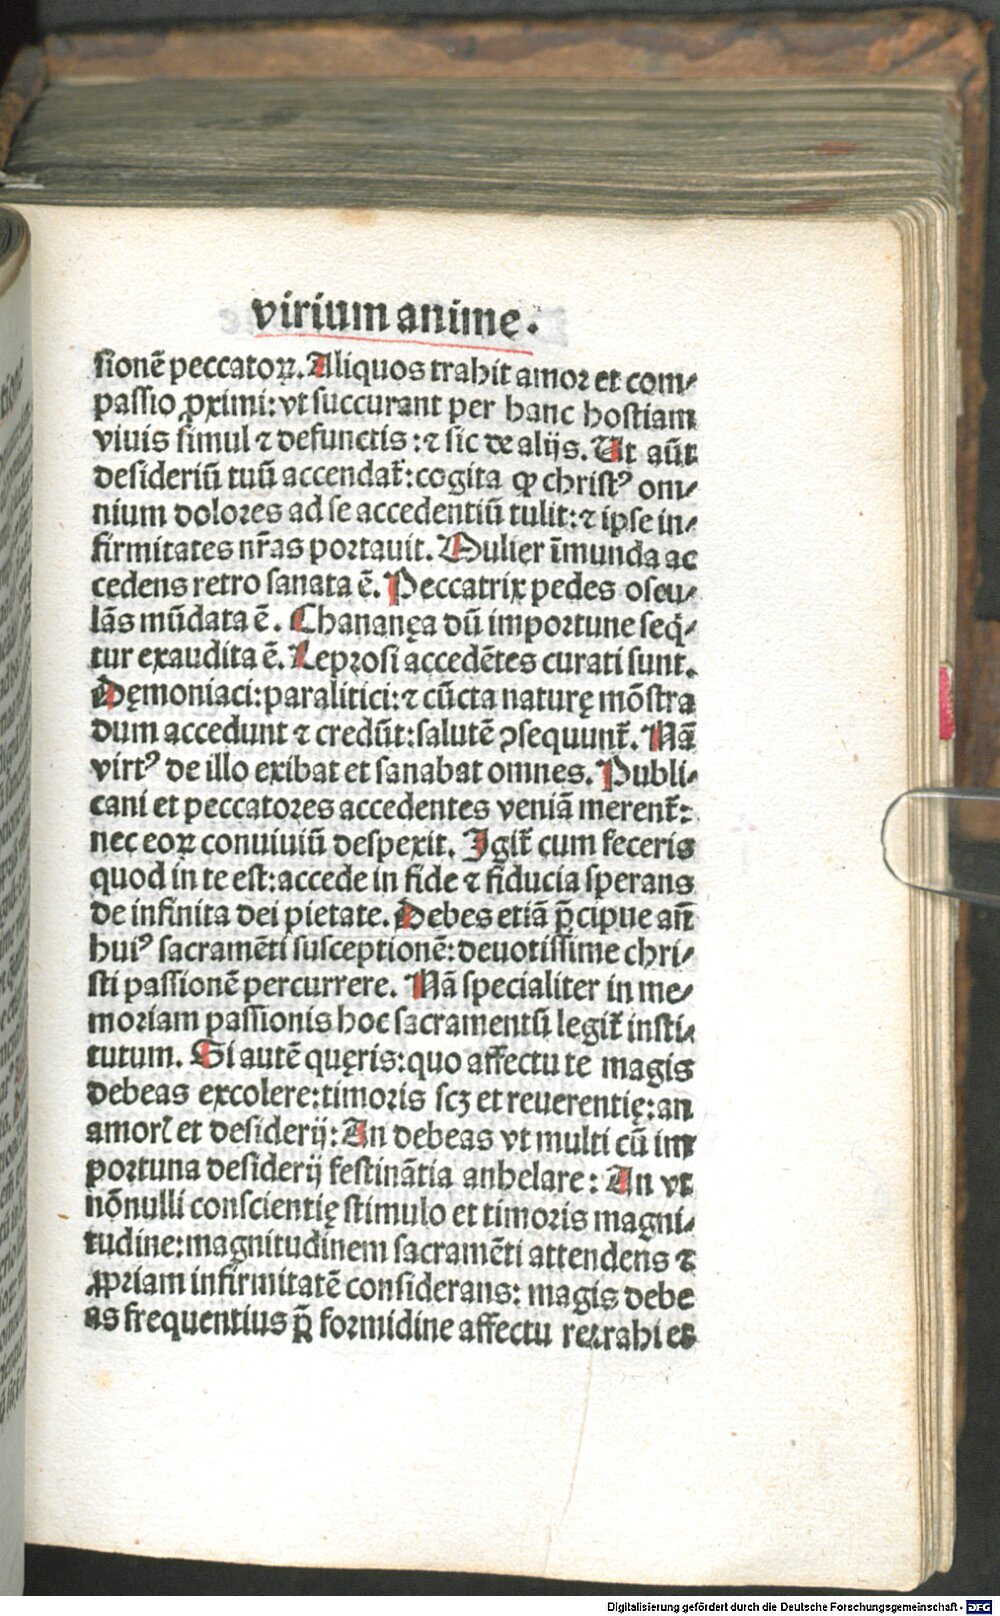 virium anime.
sionē peccatoꝝ. Aliquos trahit amor et com⸗
passio ꝓximi: vt succurant per hanc hostiam
viuis simul ⁊ defunctis: ⁊ sic de alijs. Ut aūt
desideriū tuū accendat̄: cogita ꝙ christꝰ om⸗
nium dolores ad se accedentiū tulit: ⁊ ipse in⸗
firmitates nr̄as portauit. Mulier īmunda ac
cedens retro sanata ē. Peccatrix pedes oscu⸗
lās mūdata ē. Chananęa dū importune seq̄⸗
tur exaudita ē. Leprosi accedētes curati sunt.
Dęmoniaci: paralitici: ⁊ cūcta naturę mōstra
dum accedunt ⁊ credūt: salutē ꝯsequunt̄. Nā
virtꝰ de illo exibat et sanabat omnes. Publi⸗
cani et peccatores accedentes veniā merent̄:
nec eoꝝ conuiuiū despexit. Igit̄ cum feceris
quod in te est: accede in fide ⁊ fiducia sperans
de infinita dei pietate. Debes etiā p̄cipue añ
huiꝰ sacramēti susceptionē: deuotissime chri⸗
sti passionē percurrere. Nā specialiter in me⸗
moriam passionis hoc sacramentū legit̄ insti⸗
tutum. Si autē quęris: quo affectu te magis
debeas excolere: timoris scꝫ et reuerentię: an
amorꝭ et desiderij: An debeas vt multi cū im
portuna desiderij festinātia anhelare: An vt
nōnulli conscientię stimulo et timoris magni⸗
tudine: magnitudinem sacramēti attendens ⁊
ꝓpriam infirmitatē considerans: magis debe
as frequentius p̄ formidine affectu retrahi ex
Digitalisierung gefördert durch die Deutsche Forschungsgemeinschaft - DFG